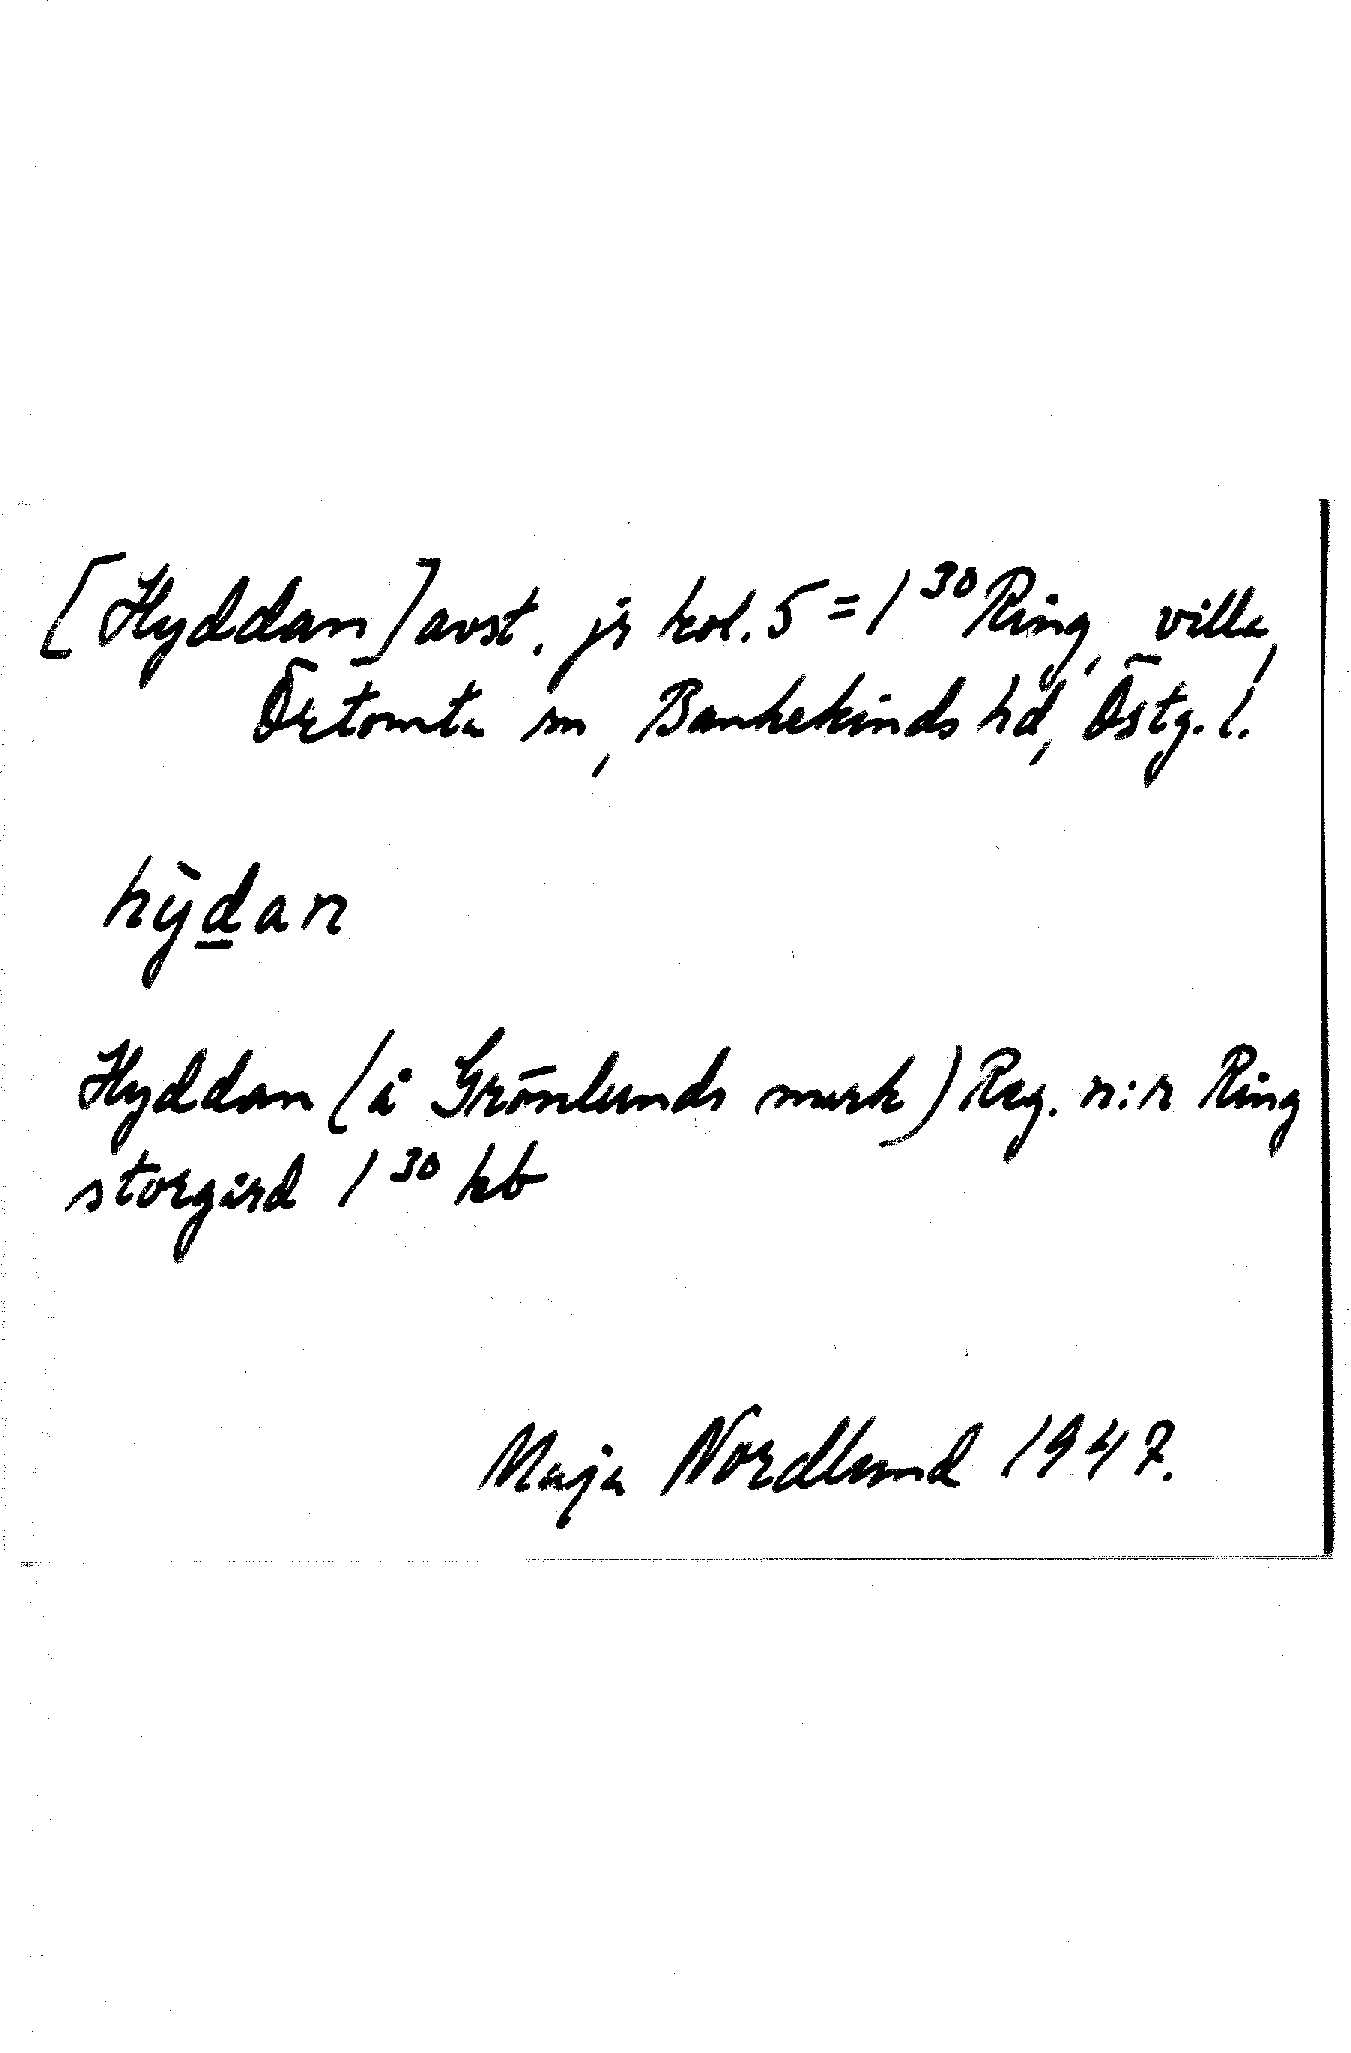 [Hyddan] avst. jr kol. 5 = 1³⁰ Ring, villa,
Örtomta sn, Bankekinds hd, Östg. l.
hỳd̲an
Hyddan (å Grönlunds mark) Reg. n:r Ring
storgård 1³⁰ kb
Maja Nordlund 1947.